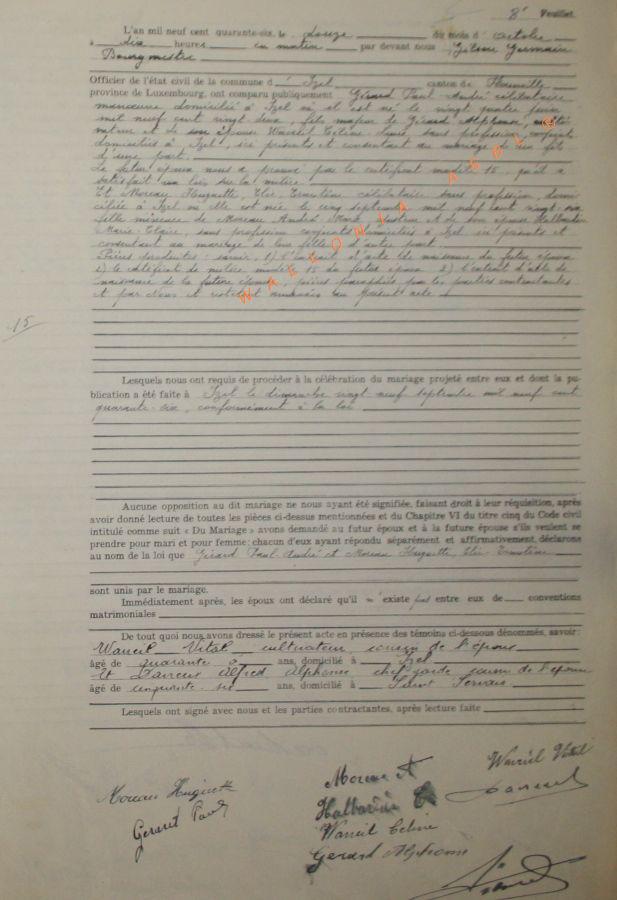 8e Feuillet.
L'an mil neuf cent quarante-six, le douze du mois d'octobre
à dix heures du matin par devant nous Gilson Germain
Bourgmestre
Officier de l'état civil de la commune d' Izel canton de Florenville
province de Luxembourg, ont comparu publiquement Gérard Paul André célibataire
manœuvre domicilié à Izel où il est né le vingt quatre juin
mil neuf cent vingt deux, fils majeur de Gérard Alphonse,
et de son épouse Warzil Céline sans profession, conjoints
domiciliés à Izel, ici présents et consentant au mariage de leur fils
d'une part.
Le futur époux nous a prouvé par le certificat modèle 15, qu'il a
satisfait aux lois sur la milice.
Et Moreau Huguette, Elie, Ernestine célibataire sans profession, domi-
ciliée à Izel où elle est née le cinq septembre mil neuf cent vingt six
fille mineure de Moreau André et de son épouse Halbardier
Marie Claire, sans profession conjoints domiciliés à Izel ici présents et
consentant au mariage de leur fille d'autre part.
Pièces produites : savoir, 1) L'extrait d'acte de naissance du futur époux
2) le certificat de milice modèle 15 du futur époux 3) L'extrait d'acte de
naissance de la future épouse, pièces paraphées par les parties contractantes
et par Nous et resteront annexées au présent acte
WAEEONIA AEDLB
15
Lesquels nous ont requis de procéder à la célébration du mariage projeté entre eux et dont la pu-
blication a été faite à Izel le dimanche vingt-neuf septembre mil neuf cent
quarante-six, conformément à la loi
Aucune opposition au dit mariage ne nous ayant été signifiée, faisant droit à leur réquisition, après
avoir donné lecture de toutes les pièces ci-dessus mentionnées et du Chapitre VI du titre cinq du Code civil
intitulé comme suit « Du Mariage » avons demandé au futur époux et à la future épouse s'ils veulent se
prendre pour mari et pour femme; chacun d'eux ayant répondu séparément et affirmativement, déclarons
au nom de la loi que Gérard Paul André et Moreau Huguette, Elie Ernestine
sont unis par le mariage.
Immédiatement après, les époux ont déclaré qu'il n'existe pas entre eux de conventions
matrimoniales
De tout quoi nous avons dressé le présent acte en présence des témoins ci-dessous dénommés, savoir:
Warzil Vital cultivateur, cousin de l'époux
âgé de quarante ans, domicilié à Izel
Et Alfred Alphonse, chef garde cousin de l'épouse
âgé de cinquante six ans, domicilié à Saint Servais
Lesquels ont signé avec nous et les parties contractantes, après lecture faite
Warzil Vital
Moreau A
Moreau Huguette
Gerard Paul
Warzil Céline
Gerard Alphonse